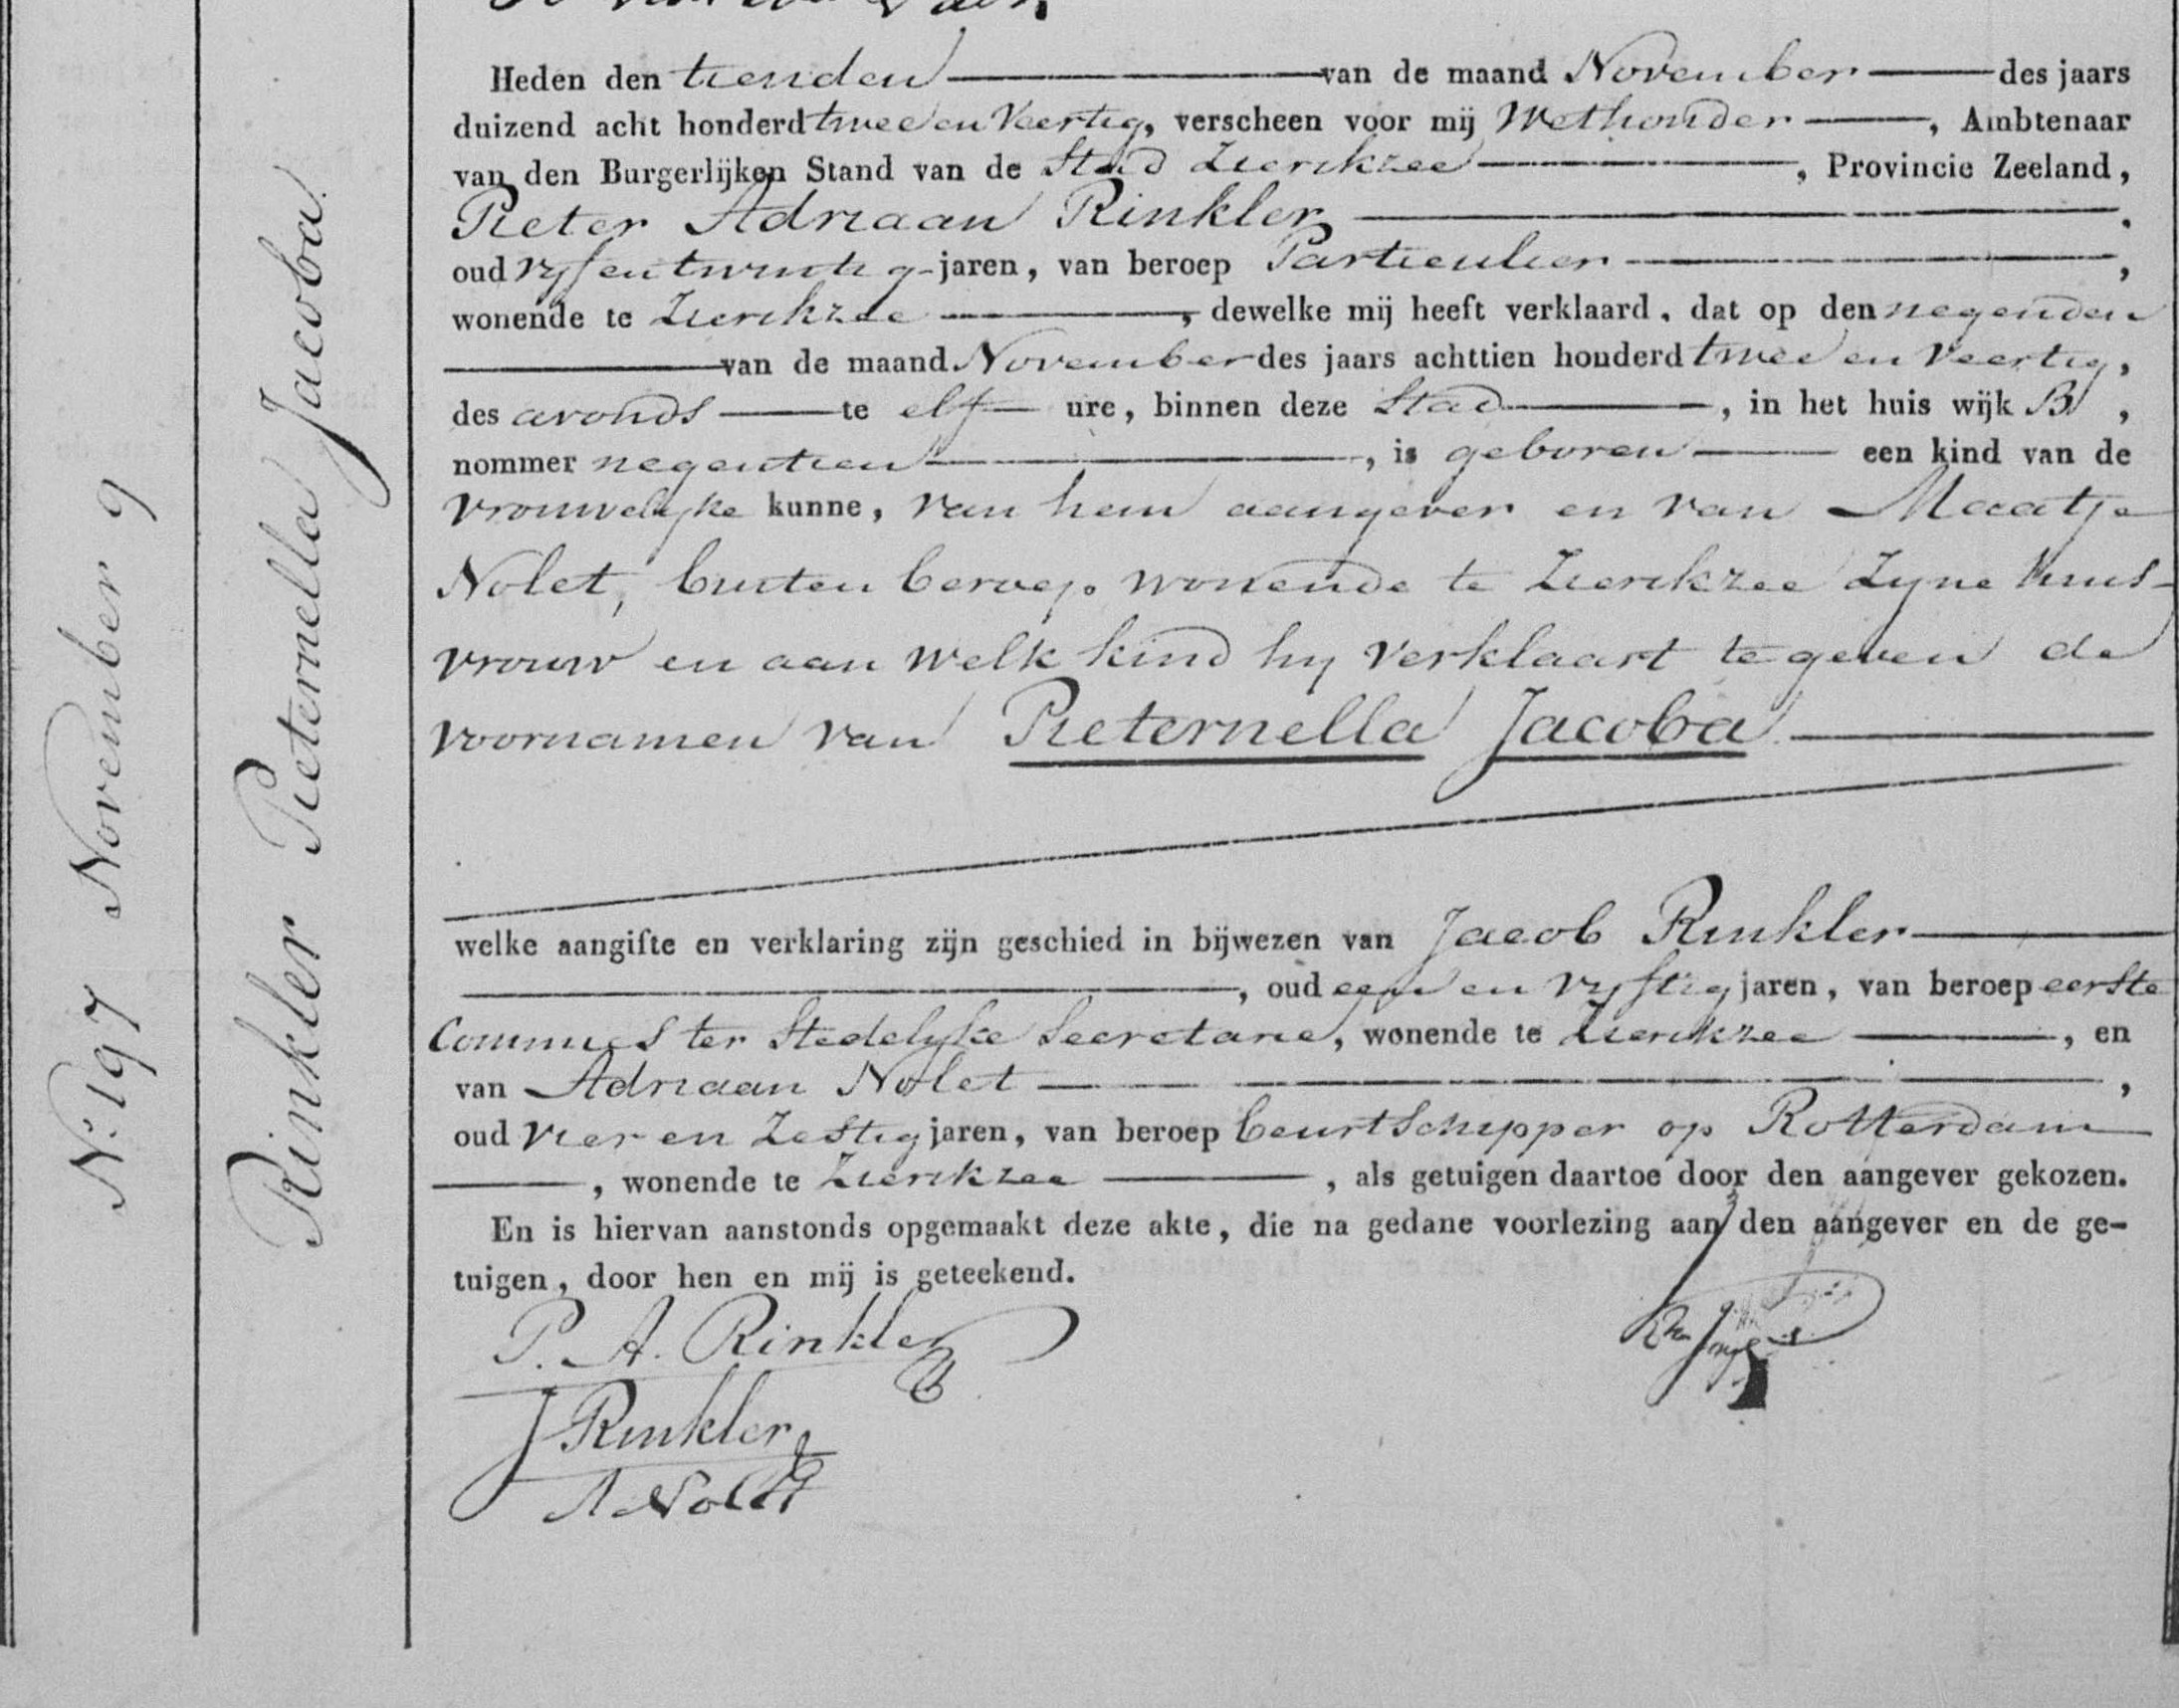 N: 197 November 9
Rinkler Pieternella Jacoba.
Heden den tienden van de maand November des jaars
duizend acht honderd twee en Veertig, verscheen voor mij Wethouder, Ambtenaar
van den Burgerlijken Stand van de Stad Zierikzee, Provincie Zeeland,
Pieter Adriaan Rinkler,
oud vyf en twintig jaren, van beroep Particulier,
wonende te Zierikzee, dewelke mij heeft verklaard, dat op den negenden
van de maand November des jaars achttien honderd twee en Veertig,
des avonds te elf ure, binnen deze Stad, in het huis wijk B,
nommer negentien, is geboren een kind van de
vrouwelyke kunne, van hem aangever en van Maatje
Nolet, buiten beroep wonende te Zierikzee Zyne huis-
vrouw en aan welk kind hy Verklaart te geven de
voornamen van Pieternella Jacoba
welke aangifte en verklaring zijn geschied in bijwezen van Jacob Rinkler
, oud een en vyftig jaren, van beroep eerste
Commies ter Stedelyke Secretarie, wonende te Zierikzee, en
van Adriaan Nolet,
oud vier en Zestig jaren, van beroep beurtschipper op Rotterdam
, wonende te Zierikzee, als getuigen daartoe door den aangever gekozen.
En is hiervan aanstonds opgemaakt deze akte, die na gedane voorlezing aan den aangever en de ge-
tuigen, door hen en mij is geteekend.
P. A. Rinkler
J Rinkler
A Nolet